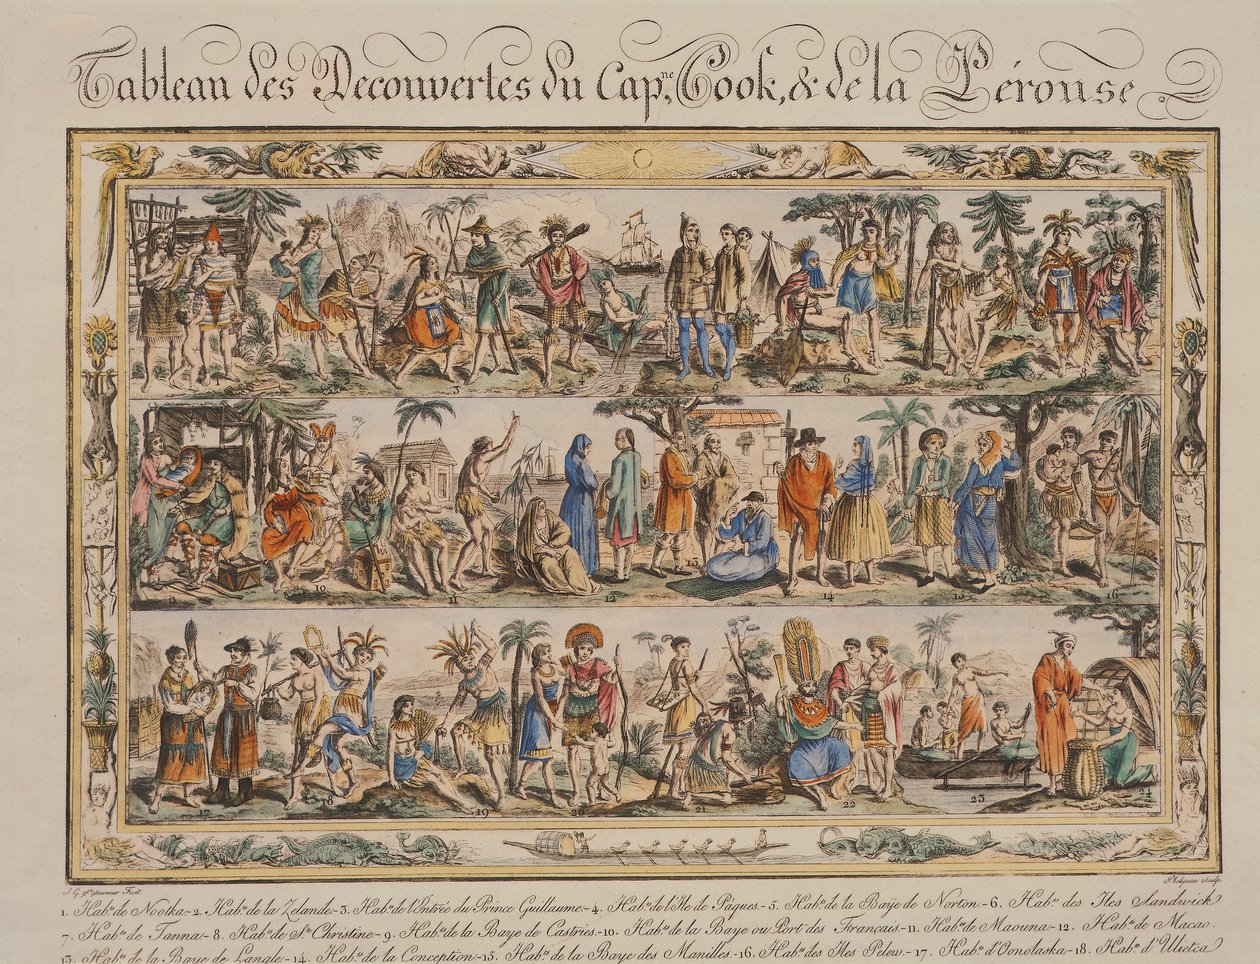 Tableau des Decouvertes du Cap.ne Cook, & de la Pérouse
1. Hab.s de Nootka.- 2. Hab.s de la Zelande.- 3. Hab.s de l'Entrée du Prince Guillaume.- 4. Hab.s de l'Ile de Pâques.- 5. Hab.s de la Baye de Norton.- 6. Hab.s des Iles Sandwick
7. Hab.s de Tanna.- 8. Hab.s de S.te Christine.- 9. Hab.s de la Baye de Castries.- 10. Hab.s de la Baye ou Port des Français.- 11. Hab.s de Maouna.- 12. Hab.s de Macao.
13. Hab.s de la Baye de Langle.- 14. Hab.s de la Conception.- 15. Hab.s de la Baye des Manilles.- 16. Hab.s des Iles Pelew.- 17. Hab.s d'Oonolaska.- 18. Hab.s d'Ulietea